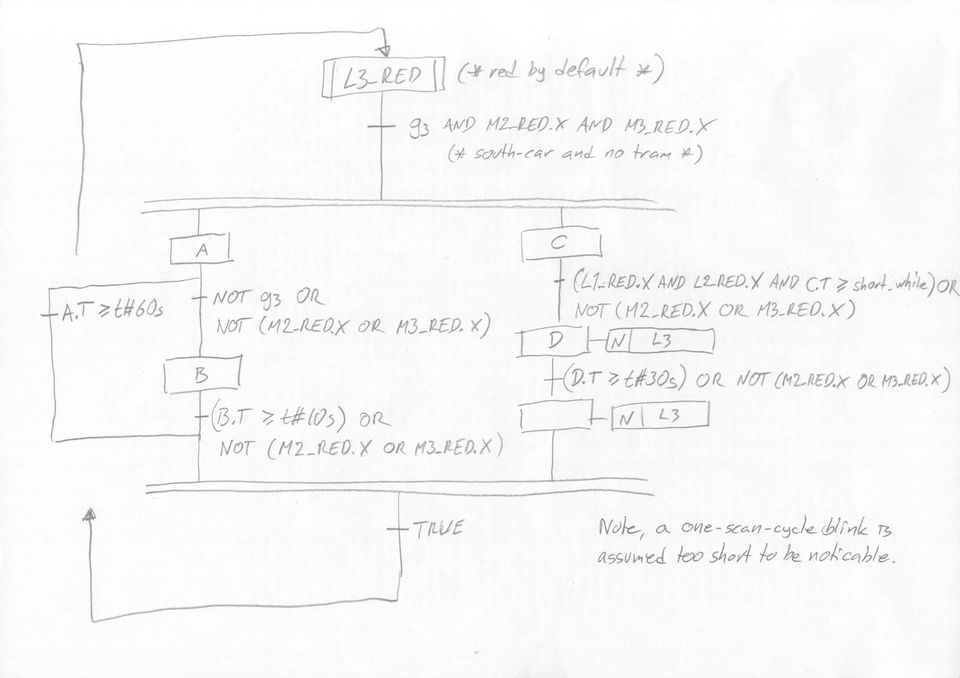 L3_RED (* red by default *)
g3 AND M2_RED.X AND M3_RED.X
(* south-car and no tram *)
A
C
(L1_RED.X AND L2_RED.X AND C.T ≥ short_while) OR
NOT (M2_RED.X OR M3_RED.X)
A.T ≥ t#60s
NOT g3 OR
NOT (M2_RED.X OR M3_RED.X)
D N L3
B
(D.T ≥ t#30s) OR NOT (M2_RED.X OR M3_RED.X)
(B.T ≥ t#10s) OR
NOT (M2_RED.X OR M3_RED.X)
N L3
TRUE
Note, a one-scan-cycle blink is
assumed too short to be noticable.